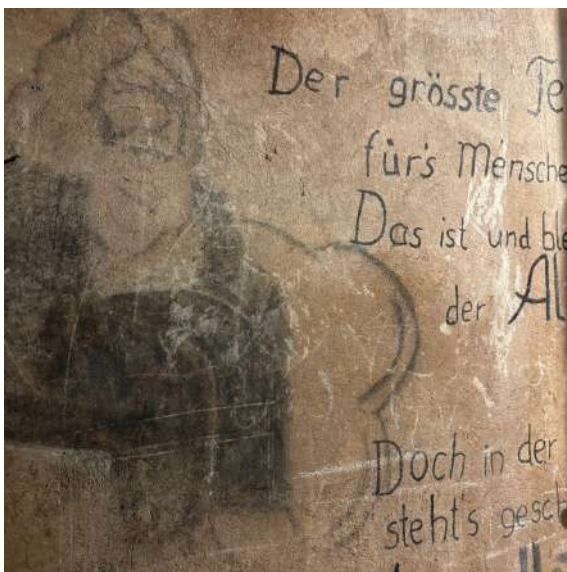 Der grösste Fe
für's Mensche
Das ist und ble
der Al
Doch in der
steht's gesch